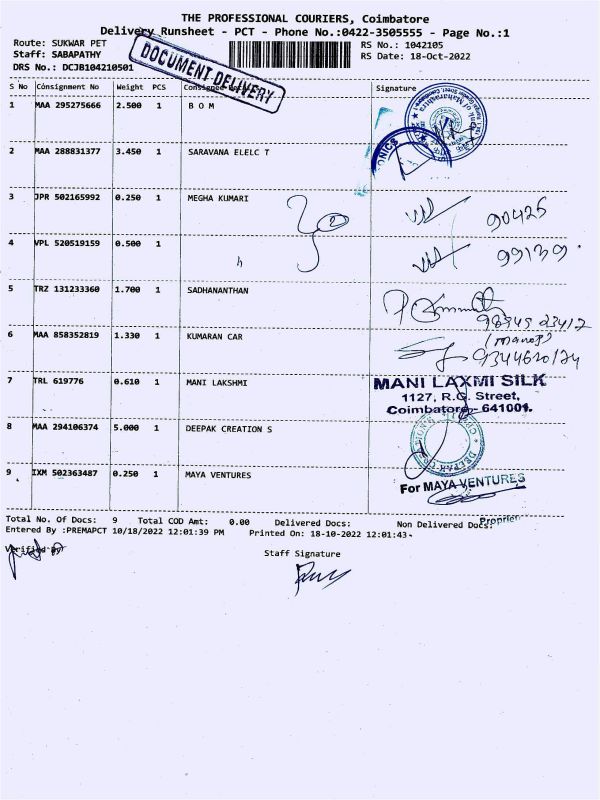 THE PROFESSIONAL COURIERS, Coimbatore
Delivery Runsheet - PCT - Phone No.:0422-3505555 - Page No.:1
Route: SUKWAR PET
Staff: SABAPATHY
DRS No.: DCJB104210501
DOCUMENT DELIVERY
RS No.: 1042105
RS Date: 18-Oct-2022
S No Consignment No Weight PCS Consignee Signature
1 MAA 295275666 2.500 1 B O M
2 MAA 288831377 3.450 1 SARAVANA ELELC T
3 JPR 502165992 0.250 1 MEGHA KUMARI 90425
4 VPL 520519159 0.500 1 99139
5 TRZ 131233360 1.700 1 SADHANANTHAN
98945 23412
(manoj)
6 MAA 858352819 1.330 1 KUMARAN CAR
7 TRL 619776 0.610 1 MANI LAKSHMI
MANI LAXMI SILK
1127, R.G. Street,
Coimbatore - 641001.
8 MAA 294106374 5.000 1 DEEPAK CREATION S
9 IXM 502363487 0.250 1 MAYA VENTURES
For MAYA VENTURES
Total No. Of Docs: 9 Total COD Amt: 0.00 Delivered Docs: Non Delivered Docs:
Entered By :PREMAPCT 10/18/2022 12:01:39 PM Printed On: 18-10-2022 12:01:43
Verified By
Staff Signature